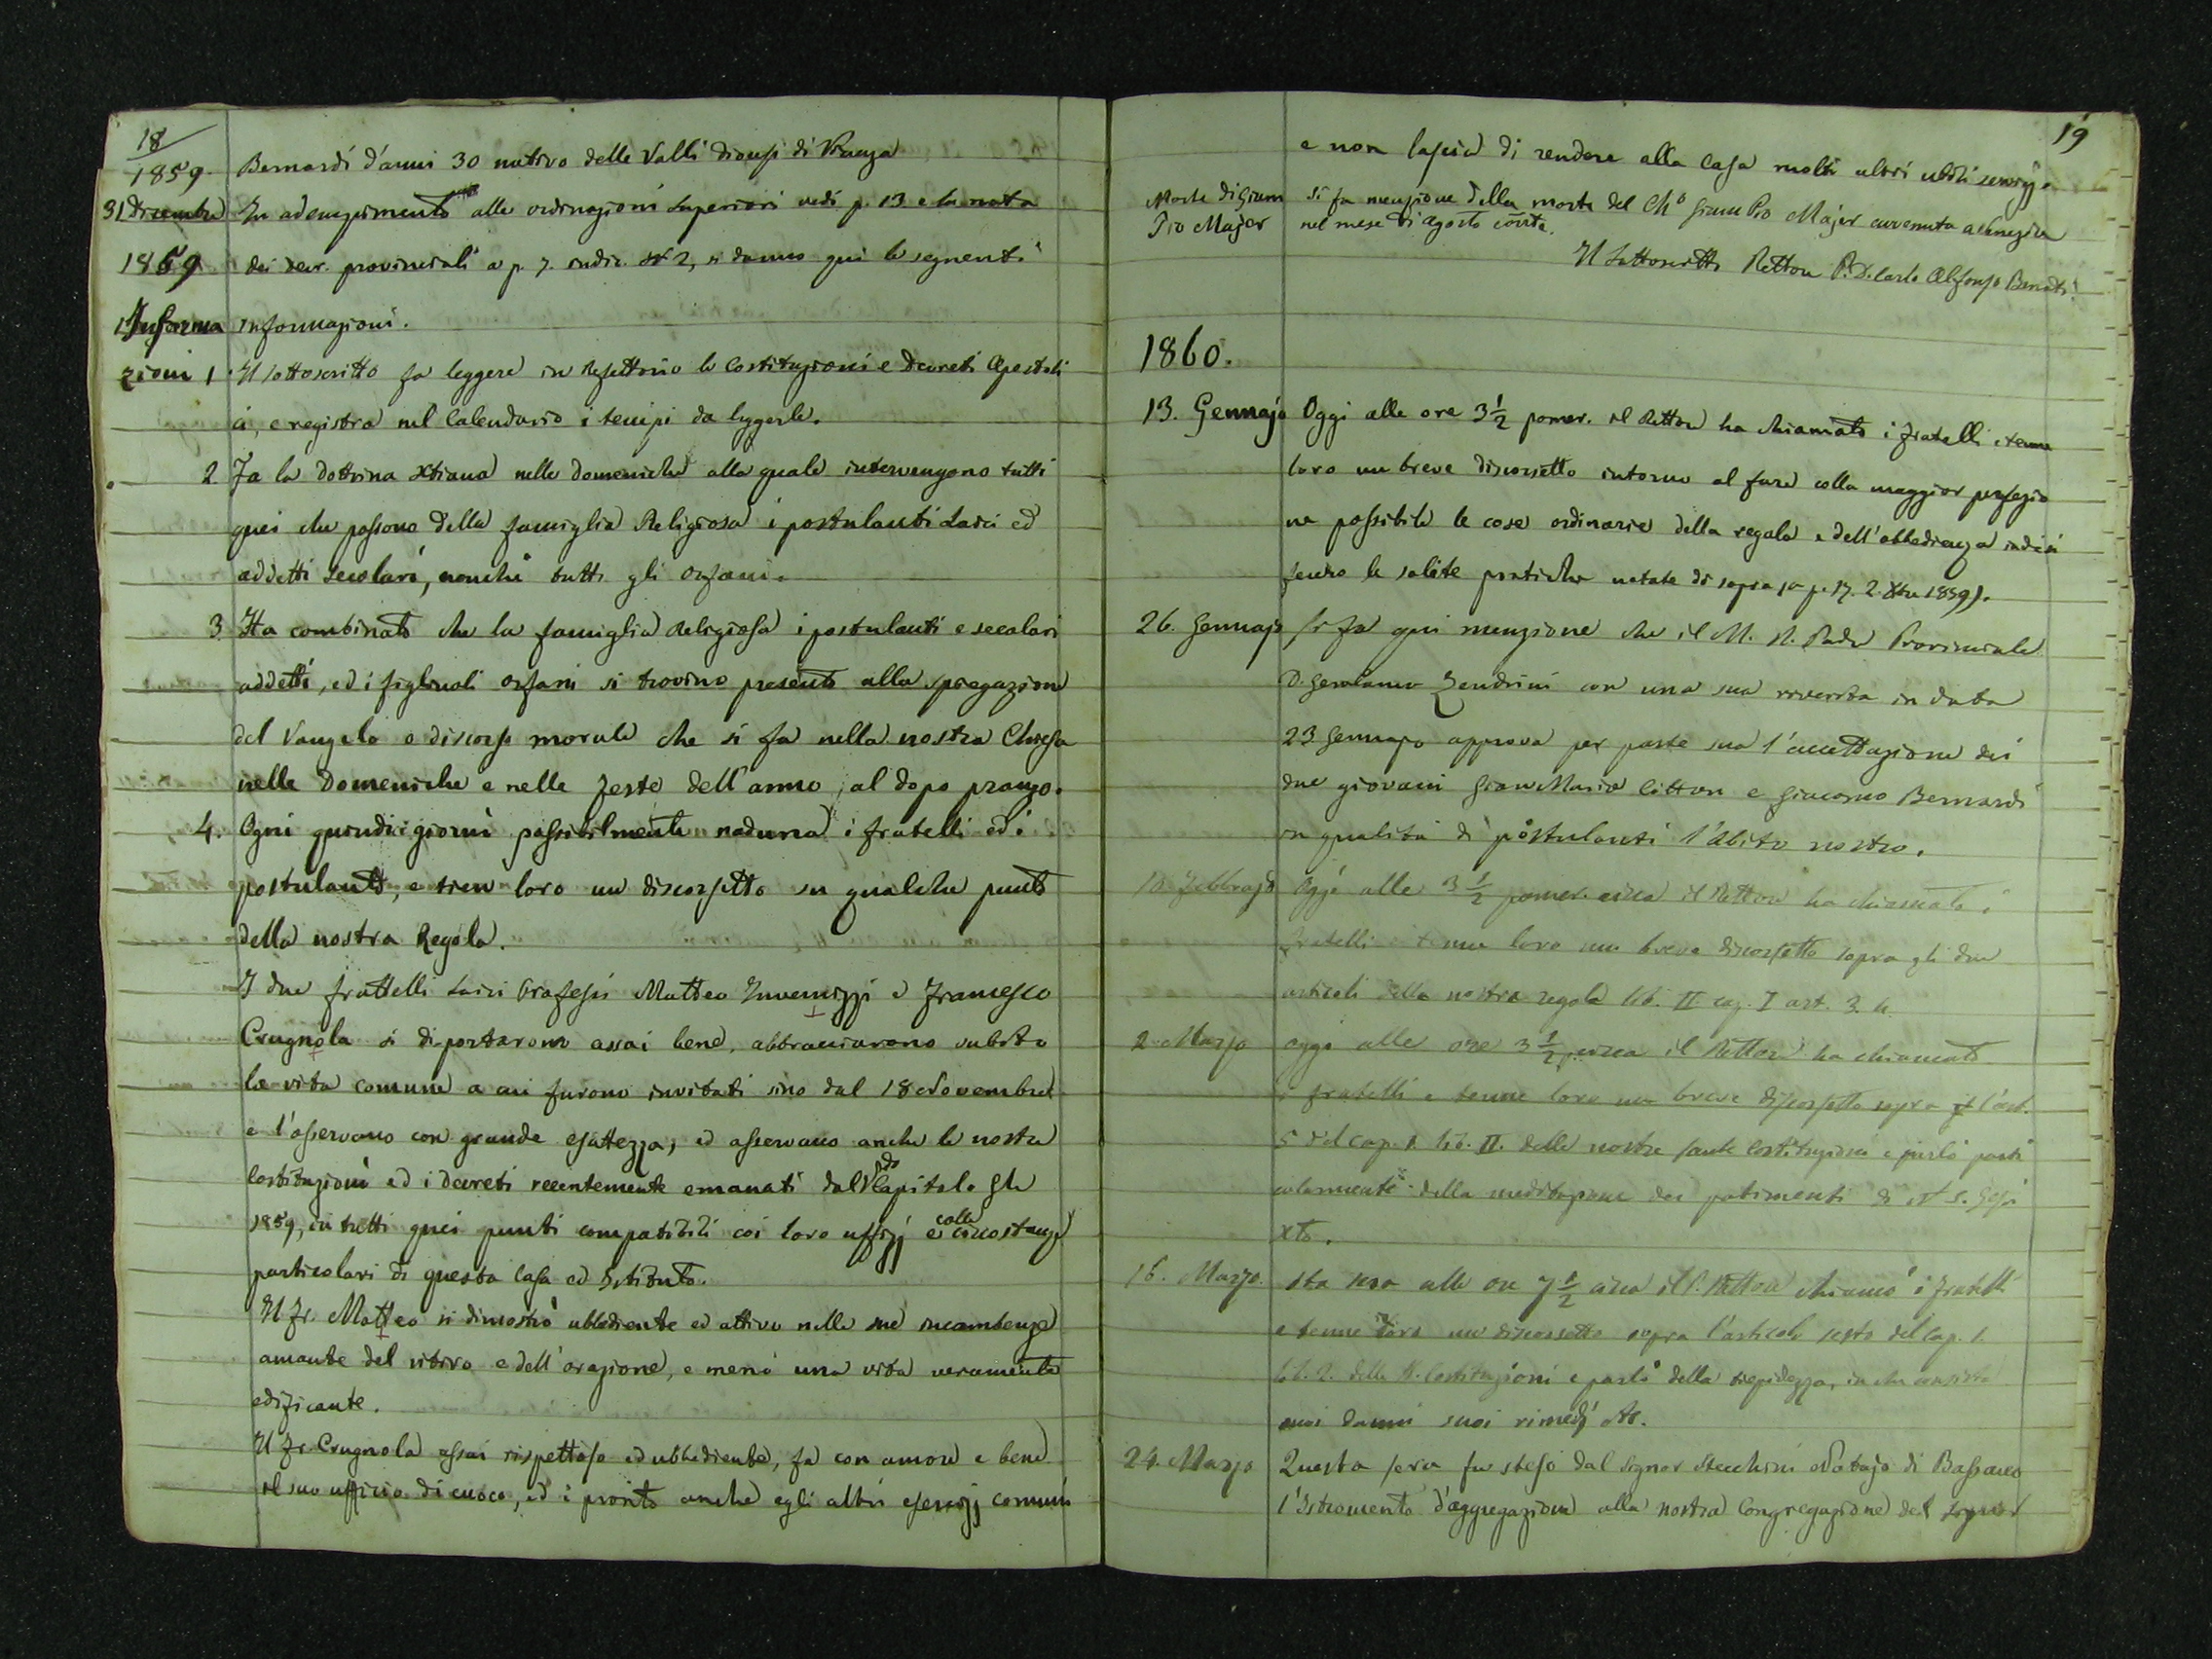 18
1859.
Bernardi d'anni 30 nativo delle Valli diocesi di Vicenza
31 Dicembre In adempimento alle ordinazioni superiori vedi p. 13 e la nota
1859 dei decr. provinciali a p. 7. indic. N 2, si danno qui le seguenti
Informa informazioni.
zioni 1 Il sottoscritto fa leggere in Refettorio le Costituzioni e Decreti Apostoli
ci, e registra nel Calendario i tempi da leggerle.
2 Fa la dottrina Xtiana nelle Domeniche alla quale intervengono tutti
quei che possono della famiglia Religiosa i postulanti Laici ed
addetti secolari, nonchè tutti gli orfani.
3 Ha combinato che la famiglia Religiosa i postulanti e secolari
addetti, ed i figliuoli orfani si trovino presenti alla spiegazione
del Vangelo e discorso morale che si fa nella nostra Chiesa
nelle Domeniche e nelle feste dell'anno, al dopo pranzo.
4. Ogni quindici giorni possibilmente raduna i fratelli ed i
postulanti, e tien loro un discorsetto su qualche punto
della nostra Regola.
I due frattelli Laici Professi Matteo Invernizzi e Francesco
Crugnola si diportarono assai bene, abbracciarono subito
la vita comune a cui furono invitati sino dal 18 Novembre
e l'osservano con grande esattezza, ed osservano anche le nostre
Costituzioni ed i decreti recentemente emanati dal Capitolo Gle
1859, in tutti quei punti compatibili coi loro uffizj e colle circostanze
particolari di questa Casa ed Istituto.
Il Fr. Matteo si dimostrò ubbediente ed attivo nelle sue incombenze
amante del ritiro e dell'orazione, e menò una vita veramente
edificante.
Il Fr. Crugnola assai rispettoso ed ubbediente, fa con amore e bene
il suo ufficio di cuoco, ed è pronto anche egli altri esercizj comuni
19
e non lascia di rendere alla Casa molti altri utili servizj.
Morte di Giam Si fa menzione della morte del Chº Giam Pio Majer avvenuta a Venezia
Pio Majer nel mese di Agosto corrte.
Il Sottoscritto Rettore P. D. Carlo Alfonso Benati.
1860.
13. Gennajo Oggi alle ore 3 1/2 pomer. il Rettore ha chiamato i fratelli e tenne
loro un breve discorsetto intorno al fare colla maggior perfezio
ne possibile le cose ordinarie della regola e dell'obbedienza indi si
fecero le solite pratiche notate di sopra (a p. 17. 2. Xbre 1859).
26. Gennajo Si fa qui menzione che il M. R. Padre Provinciale
D. Gerolamo Zendrini con una sua riverita in data
23 Gennajo approva per parte sua l'accettazione dei
due giovani Gian Maria Citton e Giacomo Bernardi
in qualità di postulanti l'Abito nostro.
10. Febbrajo Oggi alle 3 1/2 pomer. circa il Rettore ha chiamato i
fratelli e tenne loro un breve discorsetto sopra gli due
articoli della nostra regola lib. II. cap. I art. 3. 4.
2. Marzo oggi alle ore 3 1/2 circa il Rettore ha chiamato
i fratelli e tenne loro un breve discorsetto sopra l'art.
5 del cap. 1. lib. II. delle nostre sante Costituzioni e parlò parti
colarmente della meditazione dei patimenti di N. S. Gesù
Xto.
16. Marzo. Sta sera alle ore 7 1/2 circa il P. Rettore chiamò i fratelli
e tenne loro un discorsetto sopra l'articolo sesto del Cap. 1.
lib. 2. delle N. Costituzioni e parlò della tiepidezza, in che consista
suoi danni suoi rimedj etc.
24. Marzo Questa sera fu steso dal Signor Stecchini Notajo di Bassano
l'Istromento d'aggregazione alla nostra Congregazione del Signor